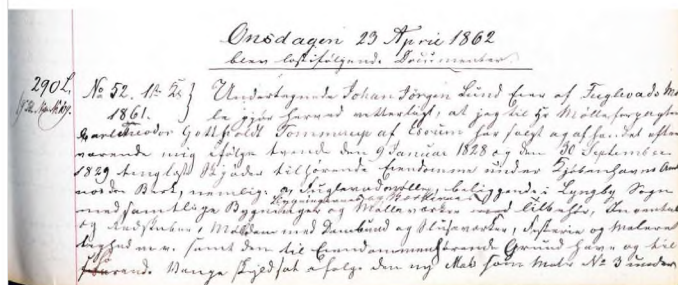 Onsdagen 23 April 1862
blev lostifølgende Documenter.
290 L. No 52. 1rk 5 Undertegnede Johan Jørgen Lund Eier af Fuglevads Møl-
1861. le gjør herved vitterligt, at jeg til Hr Mølleforpagter
Carl Theodor Gottholdt Tommerup af Elverum har solgt og afhændet efter-
nævnte mig ifølge tvende den 9 Januar 1828 og den 30 September
1829 tinglæste Skjøder tilhørende Eiendomme under Kjøbenhavns Amts
nordre Birk, nemlig: a, Fuglevadsmøllen, beliggende i Lyngby Sogn
med samtlige Bygninger og Mølleværker med Tilbehør, Inventarium
og Redskaber, Mølledam med Dambund og Sluseværker, Fiskerie og Malerettighed
m.v. samt den til Eiendommen hørende Grund Have og til-
hørende Vange skyldsat ifølge den ny Matr som Matr No 3 under